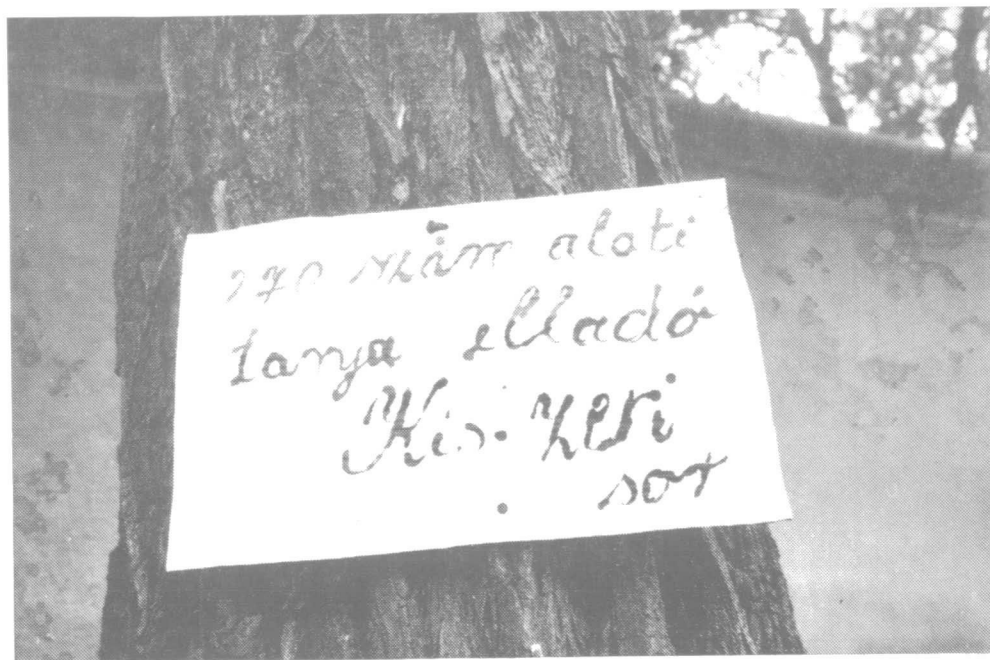 270 szám alati
tanya elladó
Kis-
sor